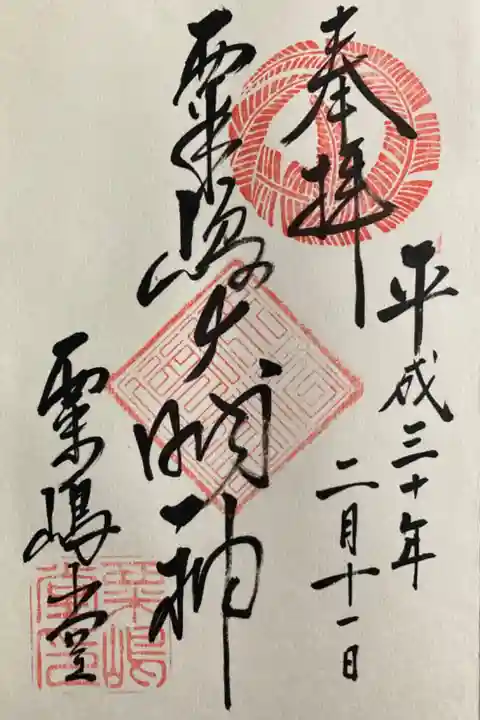 奉拝
平成三十年
二月十一日
粟嶋大明神
粟嶋堂